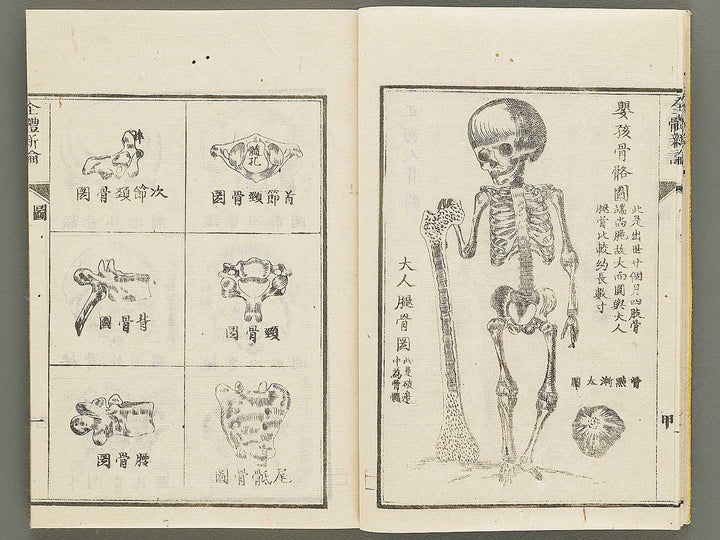 全體新論
嬰孩骨骼圖
此是出世廿個月四肢骨
端尚脆故大而圓與大人
腿骨比較約長數寸
骨點漸大圖
大人腿骨圖
此是破邊
中為骨髓
甲
髓孔
首節頸骨圖
次節頸骨圖
頸骨圖
背骨圖
尾骶骨圖
腰骨圖
全體新論
圖
一